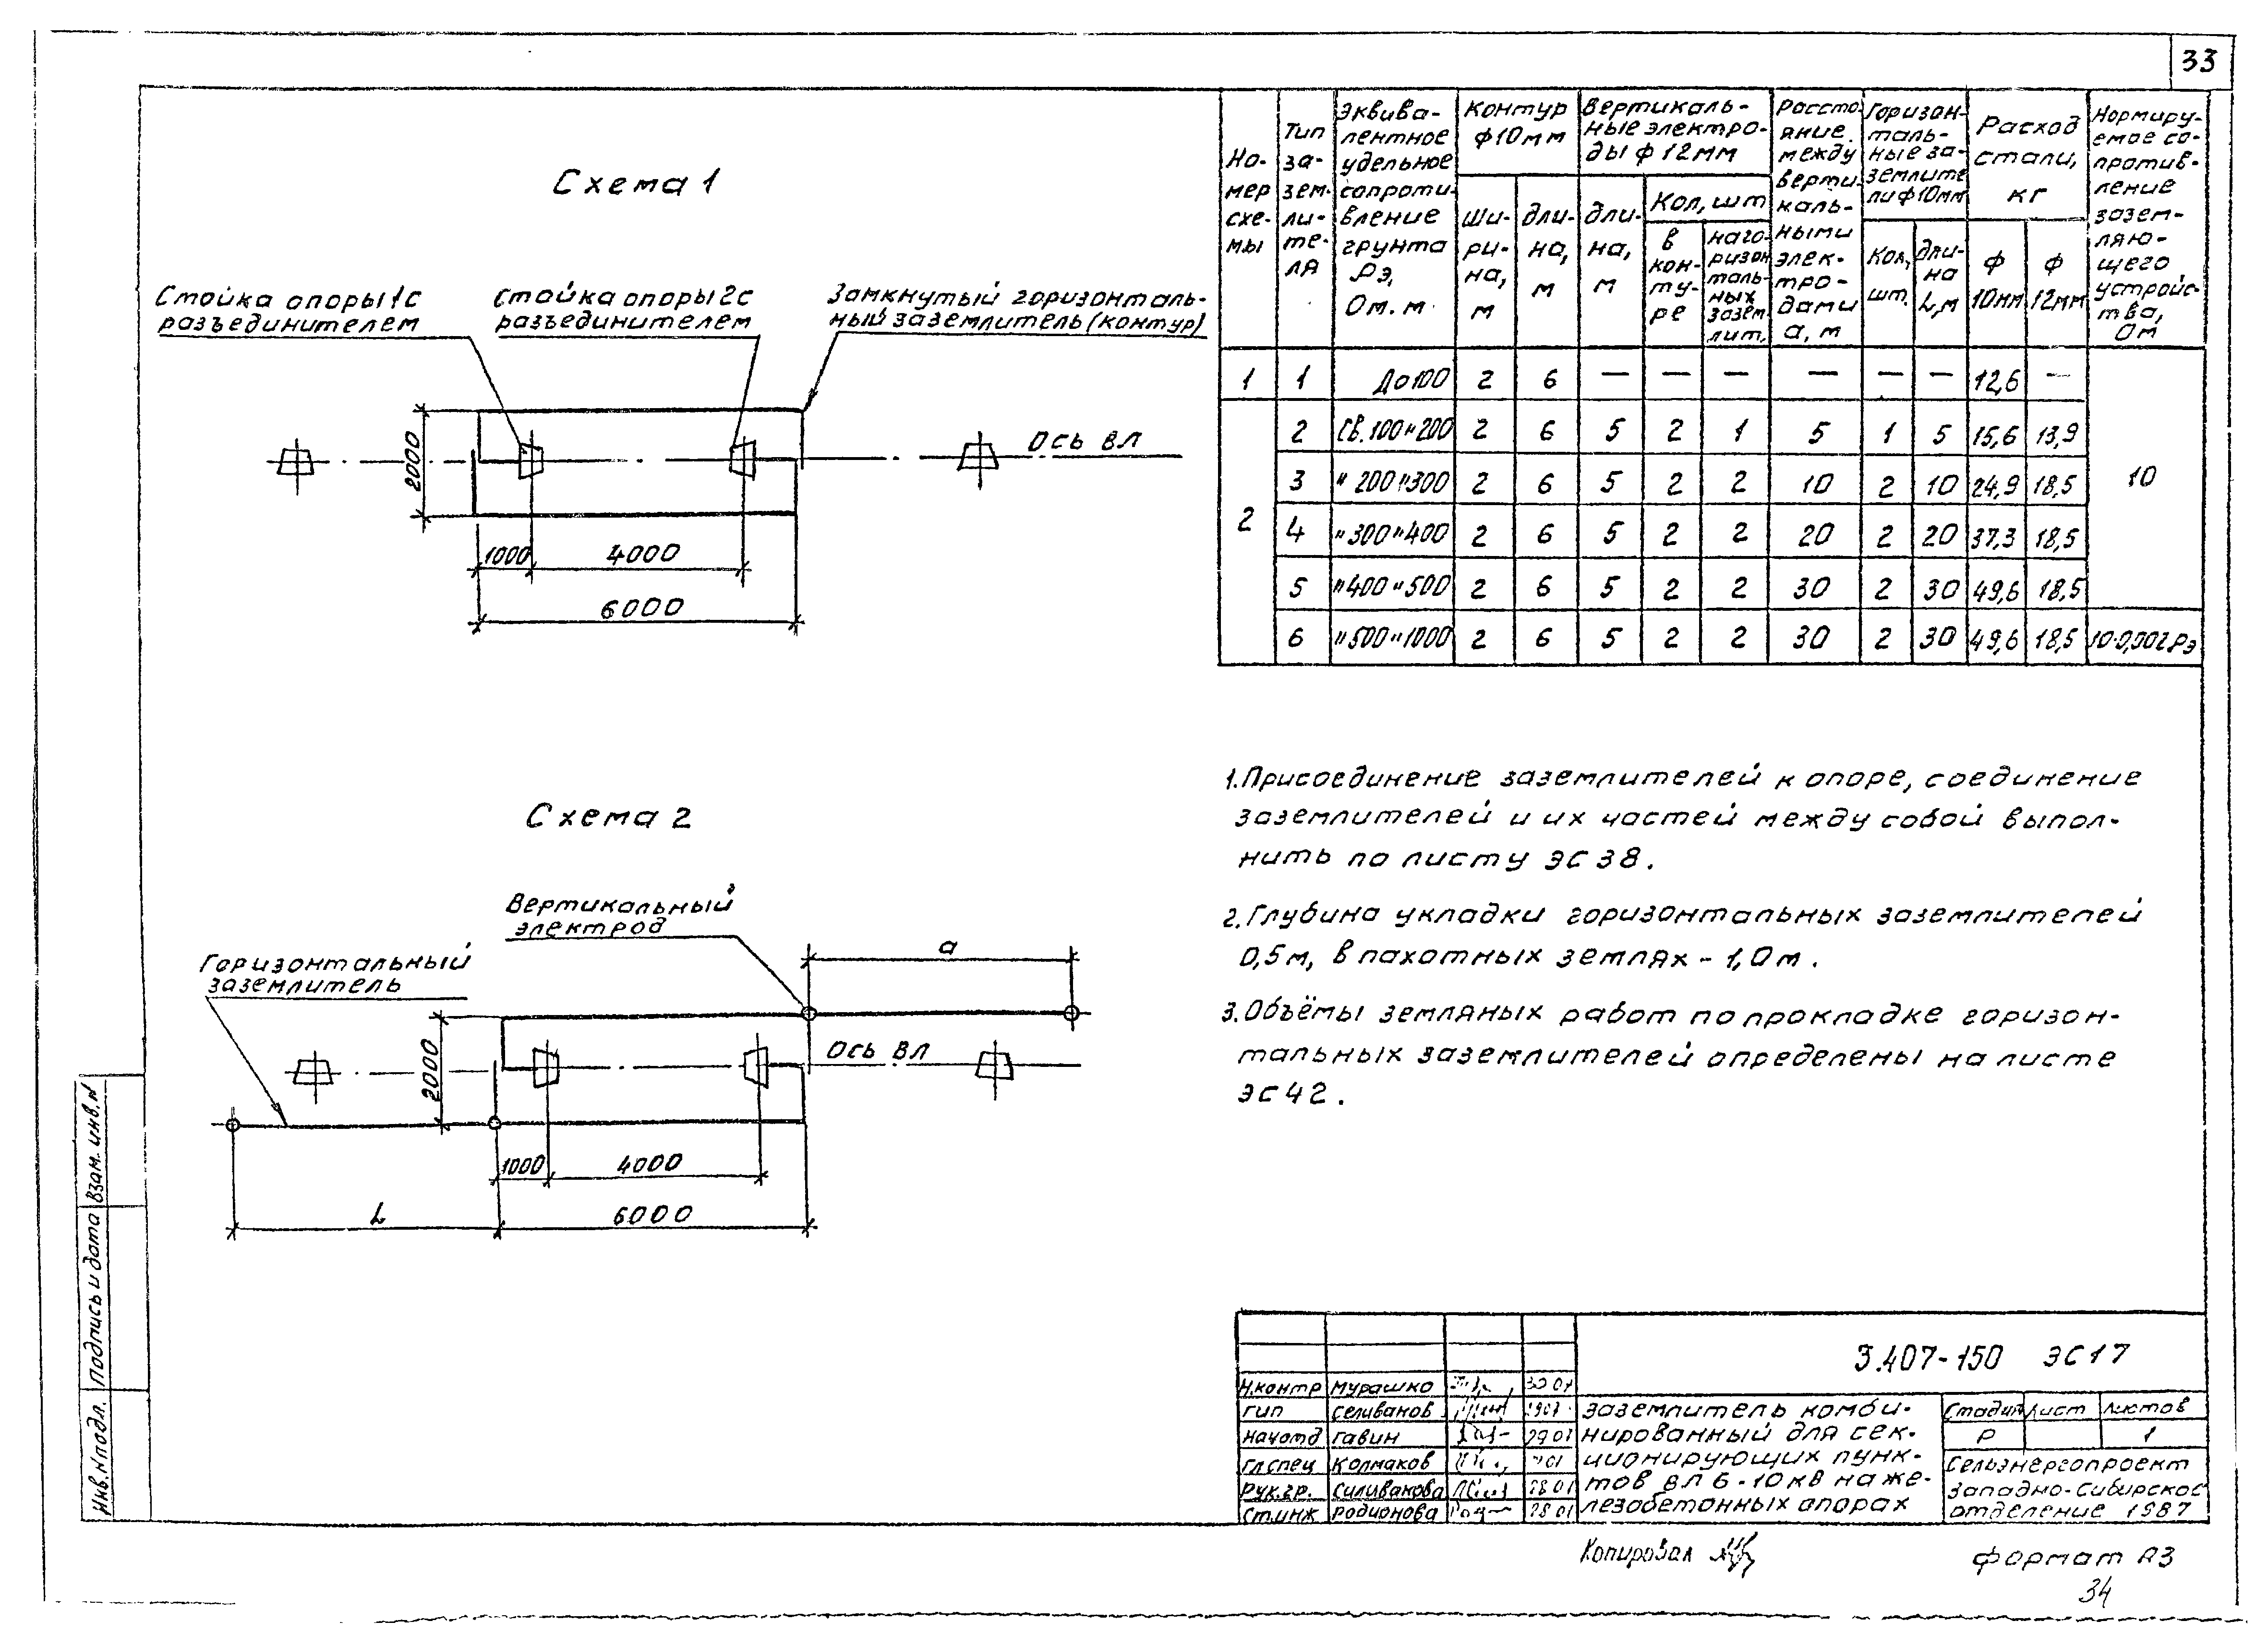 33
Схема 1
Стойка опоры 1 с
разъединителем
Стойка опоры 2 с
разъединителем
Замкнутый горизонталь-
ный заземлитель (контур)
Ось ВЛ
2000
1000
4000
6000
Схема 2
Вертикальный
электрод
Горизонтальный
заземлитель
а
Ось ВЛ
2000
1000
4000
L
6000
Но-
мер
схе-
мы
Тип
за-
зем-
ли-
те-
ля
Эквива-
лентное
удельное
сопроти-
вление
грунта
Рэ,
Ом.м.
Контур
ф10мм
Ши-
ри-
на,
м
Дли-
на,
м
Вертикаль-
ные электро-
ды ф 12мм
Дли-
на,
м
Кол, шт
в
кон-
ту-
ре
на го-
ризон
таль-
ных
зазем.
лит.
Рассто-
яние
между
верти-
каль-
ными
элек-
тро-
дами
а, м
Горизон-
таль-
ные за-
землите
ли ф10мм
Кол,
шт.
Дли-
на
L, м
Расход
стали,
кг
ф
10мм
ф
12мм
Нормиру-
емое со-
против-
ление
зазем-
ляю-
щего
устройс-
тва,
Ом
1 1 До 100 2 6 — — — — — — 12,6 —
2 Св. 100 " 200 2 6 5 2 1 5 1 5 15,6 13,9
3 " 200 " 300 2 6 5 2 2 10 2 10 24,9 18,5 10
2 4 " 300 " 400 2 6 5 2 2 20 2 20 37,3 18,5
5 " 400 " 500 2 6 5 2 2 30 2 30 49,6 18,5
6 " 500 " 1000 2 6 5 2 2 30 2 30 49,6 18,5 10·0,002Рэ
1. Присоединение заземлителей к опоре, соединение
заземлителей и их частей между собой выпол-
нить по листу ЭС 38.
2. Глубина укладки горизонтальных заземлителей
0,5м, в пахотных землях - 1,0м.
3. Объёмы земляных работ по прокладке горизон-
тальных заземлителей определены на листе
ЭС 42.
Инв. N подл.
Подпись и дата
Взам. инв. N
3.407-150 ЭС 17
Н.контр Мурашко
ГИП Селиванов
Нач отд Гавин
Гл спец Колмаков
Рук. гр. Силиванова
Ст. инж Родионова
Заземлитель комби-
нированный для сек-
ционирующих пунк-
тов ВЛ 6-10 кВ на же-
лезобетонных опорах
Стадия Лист Листов
Р 1
Сельэнергопроект
Западно-Сибирское
отделение 1987
Копировал
Формат А3
34